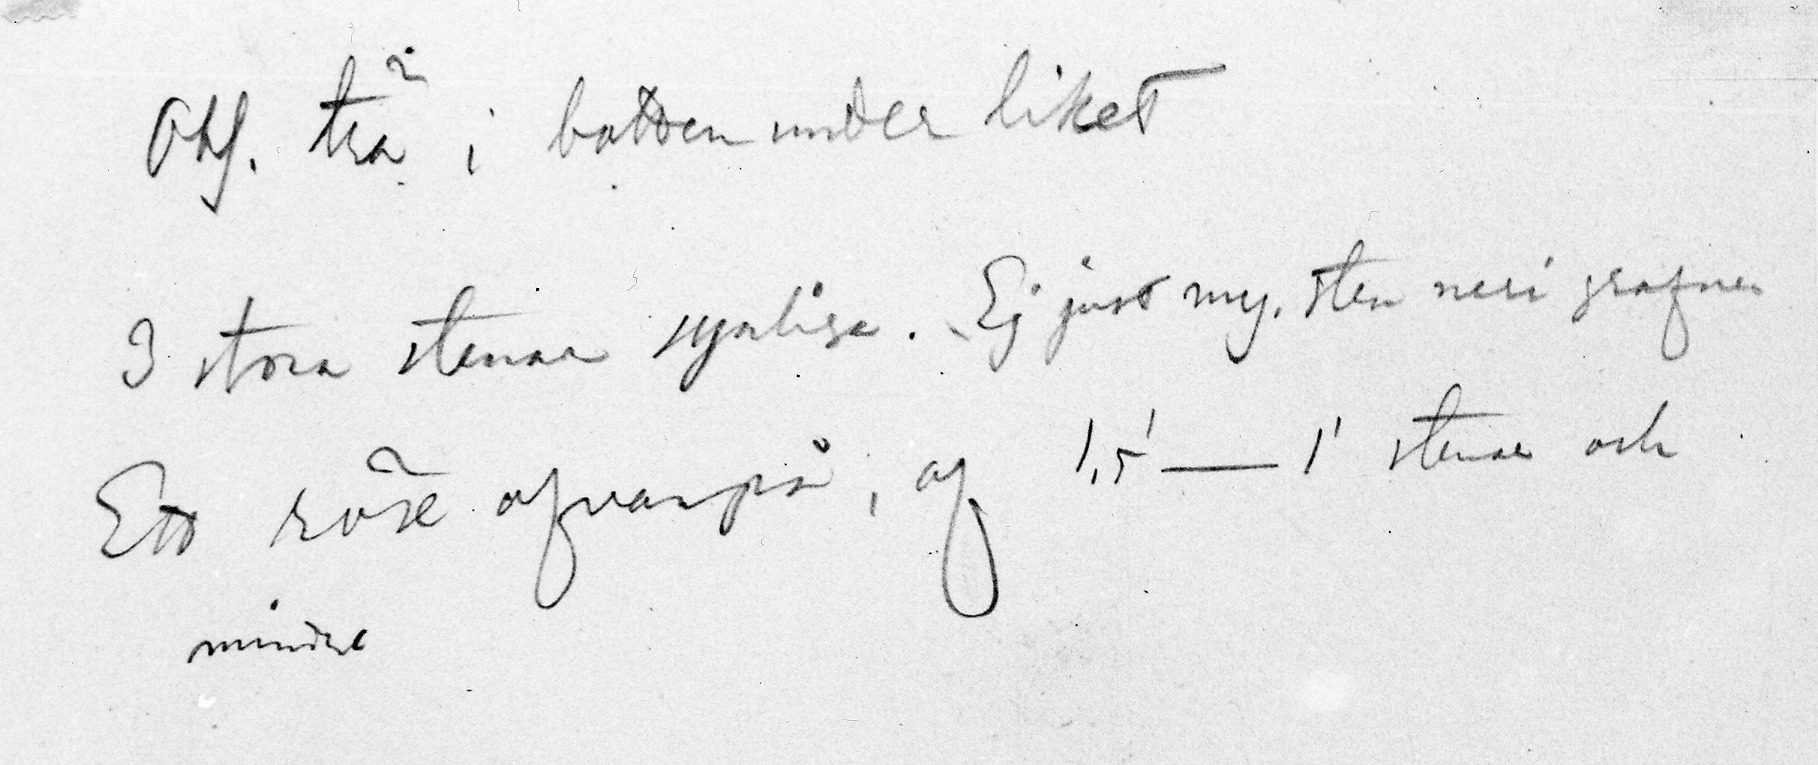 Obs. trä i botten under liket
3 stora stenar synliga. Ej just my. sten neri grafven
Ett röse ofvanpå, af 1,5'—1' stenar och
mindre